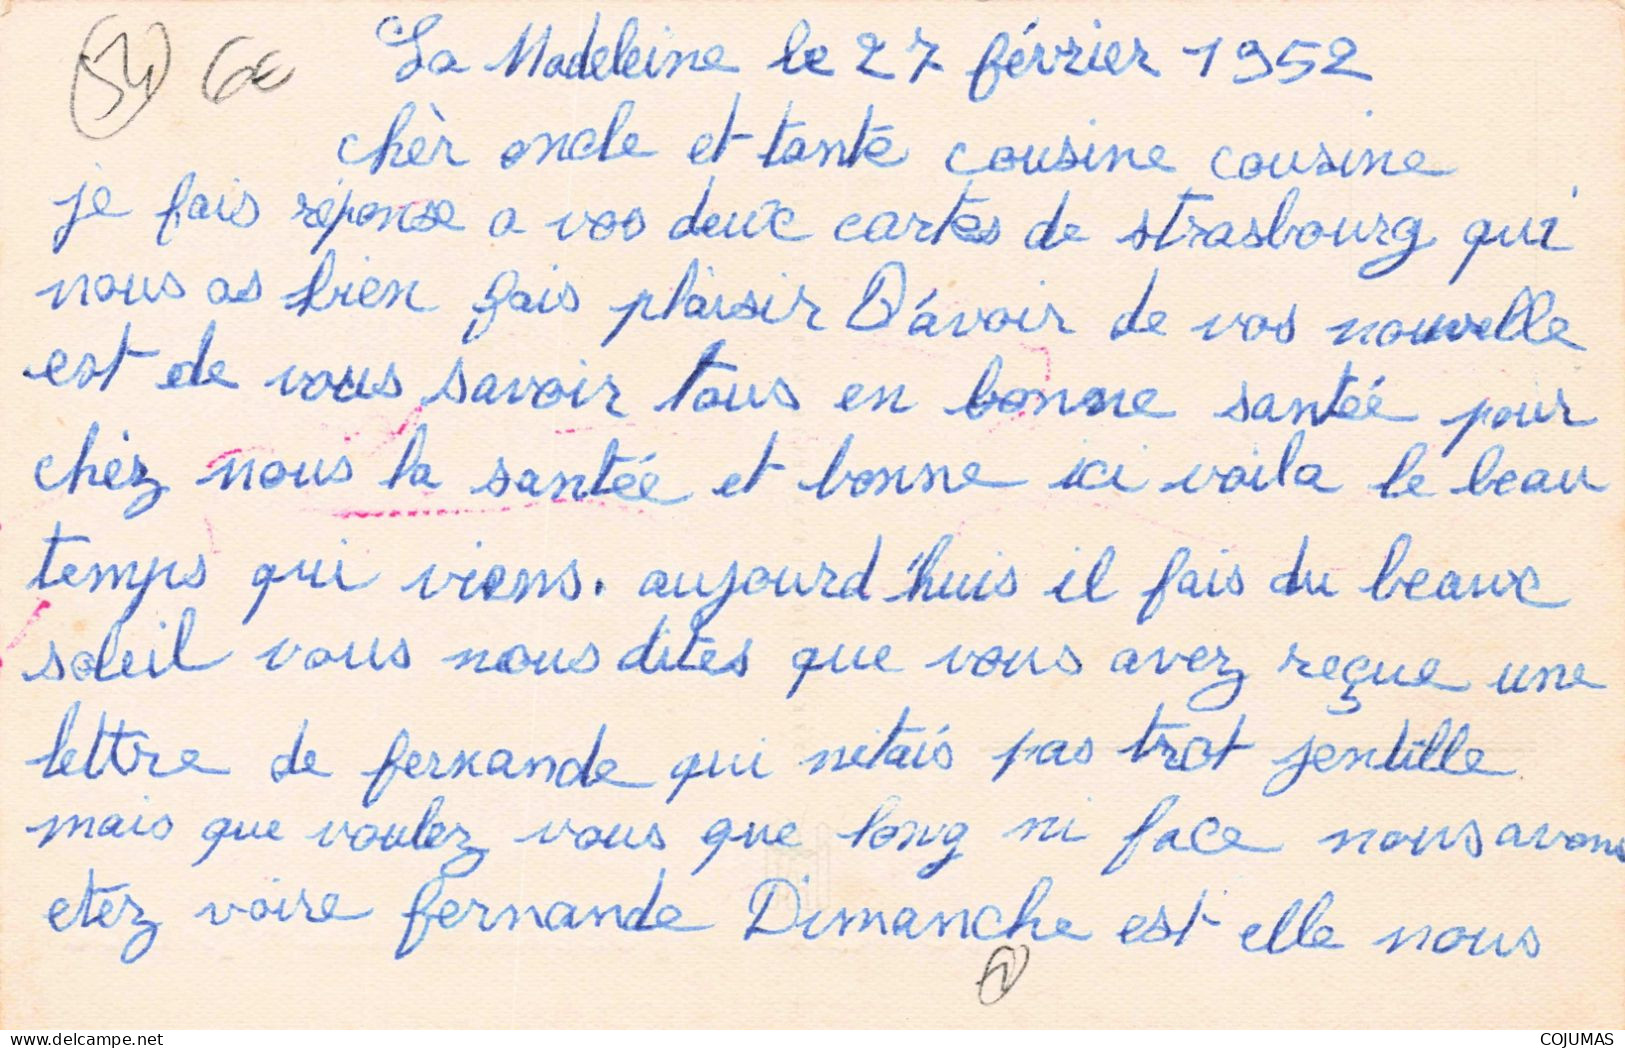 54 6€ La Madeleine le 27 février 1952
chèr oncle et tante cousine cousine
je fais réponse a vos deux cartes de strasbourg qui
nous as bien fais plaisir D'avoir de vos nouvelle
est de vous savoir tous en bonne santée pour
chèz nous la santée et bonne ici voila le beau
temps qui viens. aujourd'huis il fais du beaux
soleil vous nous dites que vous avez reçue une
lettre de fernande qui nétais pas trot jentille
mais que voulez vous que long ni face nous avons
etez voire fernande Dimanche est elle nous
delcampe.net
COJUMAS